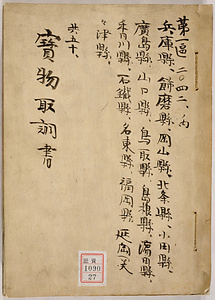 第區二〇四二、内
兵庫縣、餝磨縣、岡山縣、北条縣、小田縣、
廣島縣、山口縣、鳥取縣、島根縣、濱田縣、
香川縣、石鐵縣、名東縣、福岡縣、延岡
津縣、
共五十、
寶物取調書
1090
27